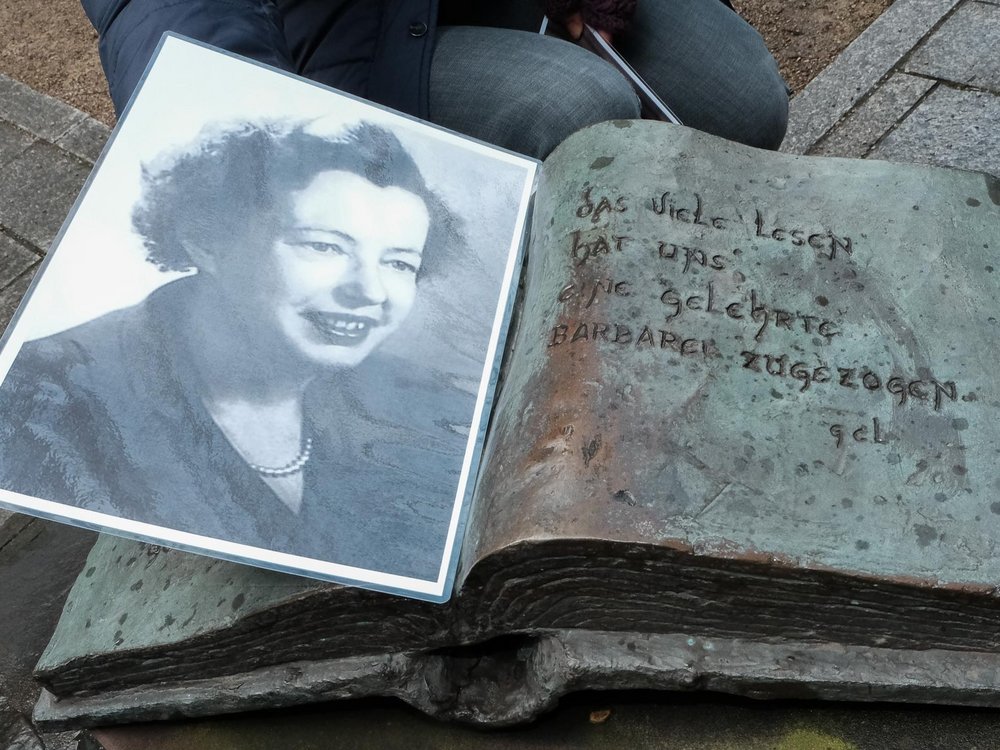 das viele Lesen
hat uns
eine gelehrte
BARBAREI zugezogen
gcl